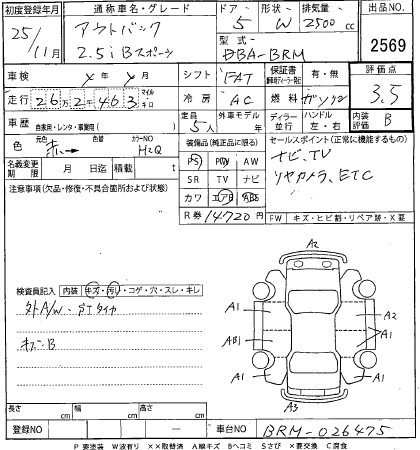 初度登録年月 通称車名・グレード ドア 形状 排気量 出品NO.
25/11月 アウトバック 5 W 2500 cc
2.5i Bスポーツ 型式 DBA-BRM 2569
車検 メ 年 メ 月 シフト FAT 保証書 有・無 評価点
走行 26万2千463 マイル キロ 冷房 AC 燃料 ガソリン 3.5
車歴 自家用・レンタ・事業用( ) 定員 5人 外車モデル 年 ディーラー 並行 ハンドル 左・右 内装評価 B
色 元色 赤→ 色替 カラーNO H2Q 装備品(純正品に限る) セールスポイント(正常に機能するもの)
PS PW AW ナビ、TV
名義変更期限 月 日迄 積載 t SR TV ナビ リヤカメラ、ETC
注意事項(欠品・修復・不具合箇所および状態) カワ エアB ABS
R券 14720円 FW キズ・ヒビ割・リペア跡・X要
検査員記入 内装 キズ・汚れ・コゲ・穴・スレ・キレ
外A/W・STタイヤ
キズ・B
A2
A1 A1
A1 A2
AB1 A1
A1 A1
A3
長さ cm 幅 cm 高さ cm
登録NO ー 車台NO BRM-026475
P 要塗装 W波有り ××取替済 A線キズ Bヘコミ Sさび ×要交換 C腐食